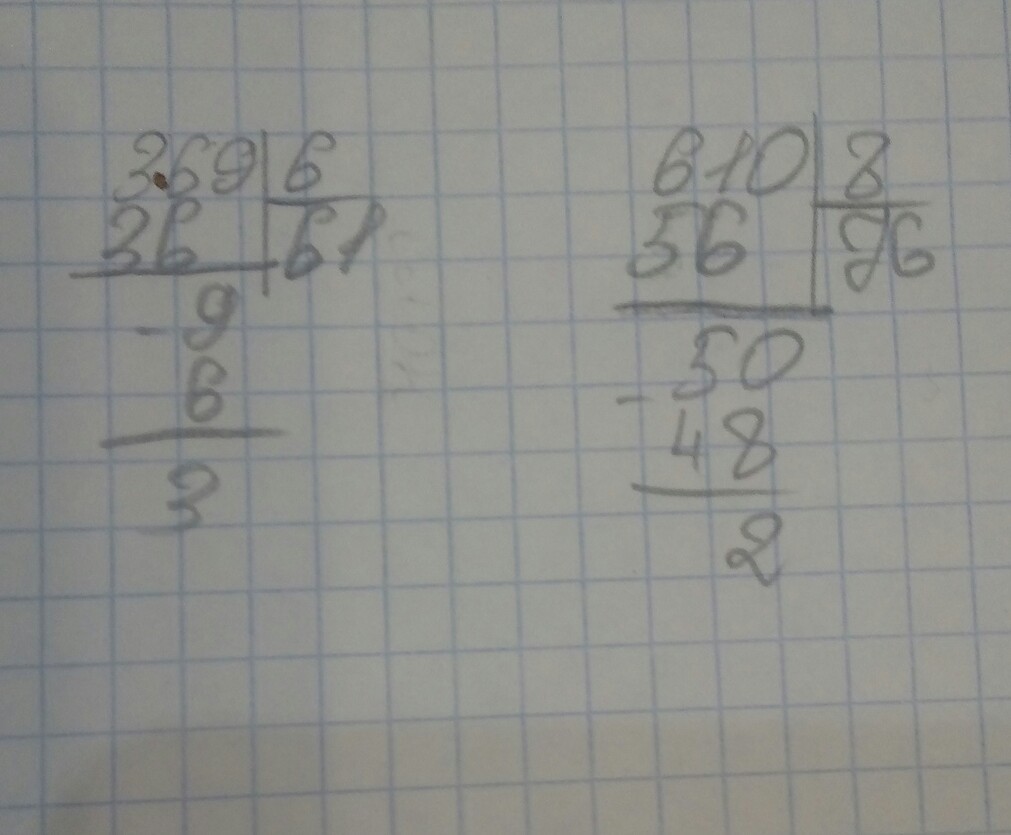 369 6
36 61
- 9
6
3
610 8
56 76
50
- 48
2